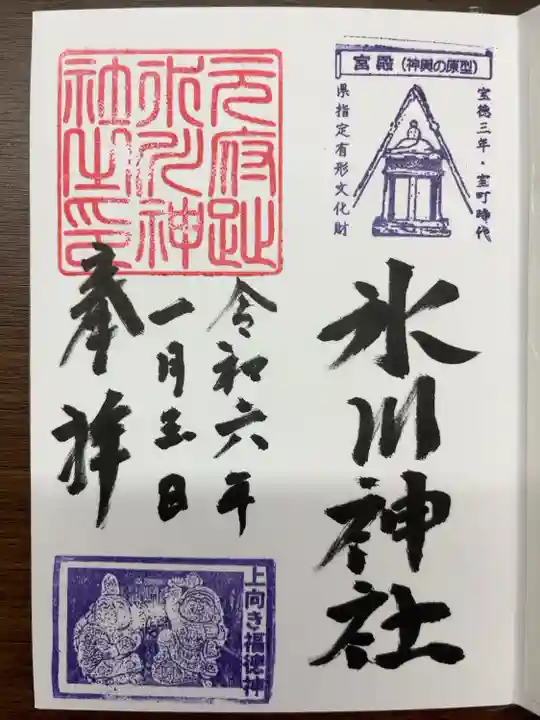 宮殿(神輿の原型)
宝徳三年・室町時代
県指定有形文化財
氷川神社
元府趾
氷川神
社之印
令和六年
一月日
奉拝
上向き福徳神